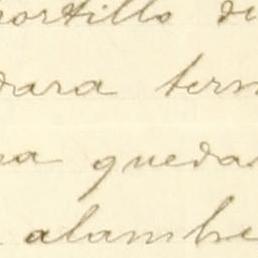 portillo de
dara ter
na quedas
alambre